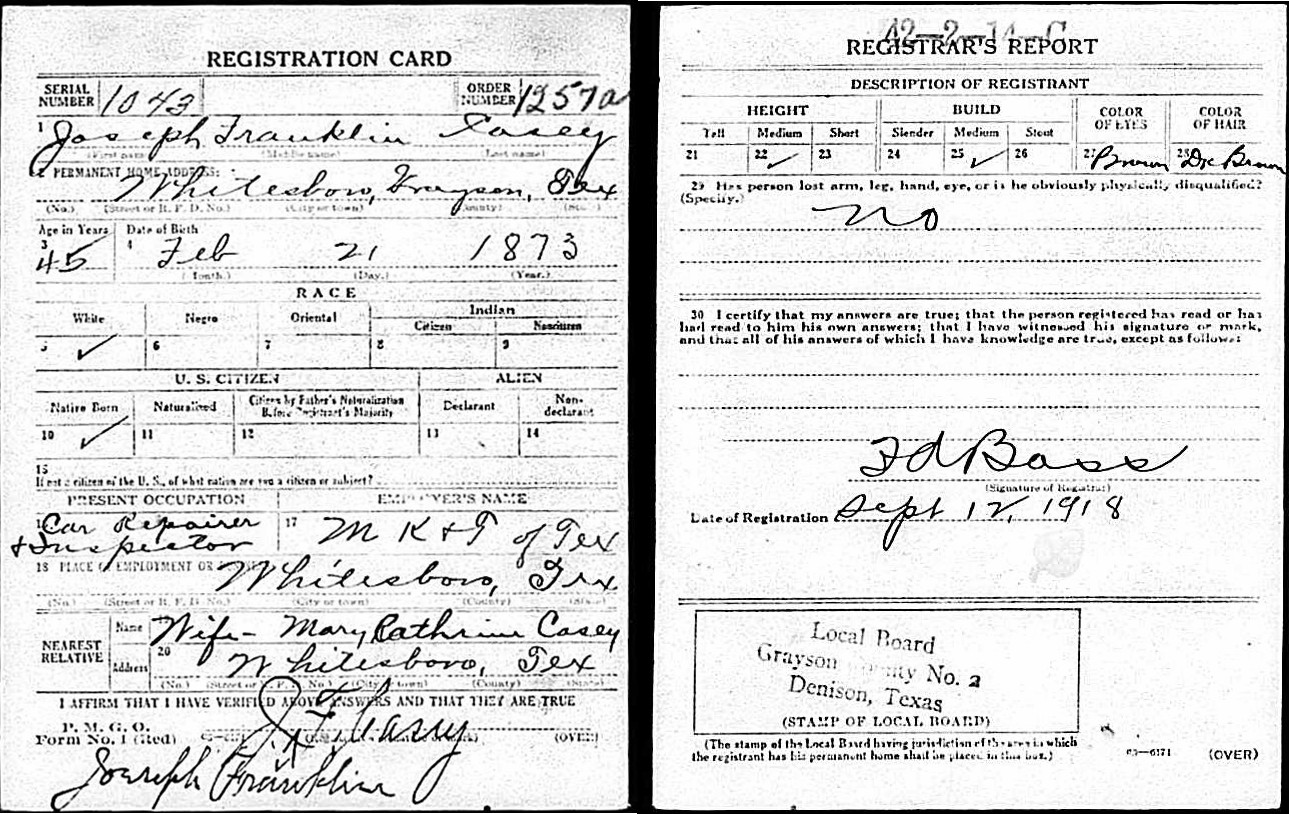 REGISTRATION CARD
SERIAL NUMBER 1043 ORDER NUMBER 1257a
1 Joseph Franklin Casey
(First name) (Middle name) (Last name)
2 PERMANENT HOME ADDRESS:
Whitesboro, Grayson, Tex
(No.) (Street or R. F. D. No.) (City or town) (County) (State)
Age in Years Date of Birth
3 45 4 Feb 21 1873
(Month.) (Day.) (Year.)
RACE
White Negro Oriental Indian
Citizen Noncitizen
5 ✓ 6 7 8 9
U. S. CITIZEN ALIEN
Native Born Naturalized Citizen by Father's Naturalization Before Registrant's Majority Declarant Non-declarant
10 ✓ 11 12 13 14
15
If not a citizen of the U. S., of what nation are you a citizen or subject?
PRESENT OCCUPATION EMPLOYER'S NAME
Car Repairer 17 M K & T of Tex
+ Inspector
18 PLACE OF EMPLOYMENT OR
Whitesboro, Tex
(No.) (Street or R. F. D. No.) (City or town) (County) (State)
NEAREST RELATIVE Name Wife - Mary Cathrine Casey
Address 20 Whitesboro, Tex
(No.) (Street or R. F. D. No.) (City or town) (County) (State)
I AFFIRM THAT I HAVE VERIFIED ABOVE ANSWERS AND THAT THEY ARE TRUE
P. M. G. O.
Form No. 1 (Red) J F Casey (OVER)
Joseph Franklin
42-2-14-C
REGISTRAR'S REPORT
DESCRIPTION OF REGISTRANT
HEIGHT BUILD COLOR OF EYES COLOR OF HAIR
Tall Medium Short Slender Medium Stout
21 22 ✓ 23 24 25 ✓ 26 27 Brown 28 Dk Brown
29 Has person lost arm, leg, hand, eye, or is he obviously physically disqualified?
(Specify.)
no
30 I certify that my answers are true; that the person registered has read or has
had read to him his own answers; that I have witnessed his signature or mark,
and that all of his answers of which I have knowledge are true, except as follows:
Ed Bass
(Signature of Registrar)
Date of Registration Sept 12, 1918
Local Board
Grayson County No. 2
Denison, Texas
(STAMP OF LOCAL BOARD)
(The stamp of the Local Board having jurisdiction of the area in which
the registrant has his permanent home shall be placed in this box.)
03-6171 (OVER)